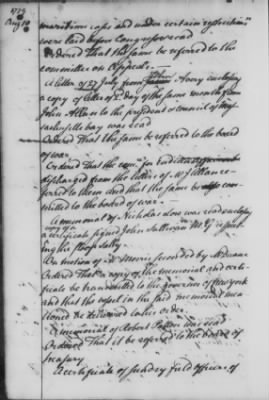 1779
Aug 10
maritime caps and under certain
were laid before Congress read
Ordered That the same be referred to the
committee on Appeals.
A letter of 27 July from Avery enclosing
a copy of letter of 2d day of the same month from
John Allan to the president & council of Mas
sachusetts bay was read
Ordered That the same be referred to the board
of war.
Ordered That the com:ee be
discharged from the letters of re
ferred to them and that the same be com
mitted to the board of war.
A memorial of Nicholas Low was read enclosg
copy of a
a certificate signed John Sullivan M. G. respect
ing the sloop Sally
On motion of Mr Morris seconded by Mr Duane
Ordered That a copy of the memorial and certi
ficate be transmitted to the governor of New york
and that the vessel in the said memorial men
tioned be delivered to his order.
A memorial of Robert Patton was read
Ordered That it be referred to the board of
treasury
A certificate of sundry field officers of